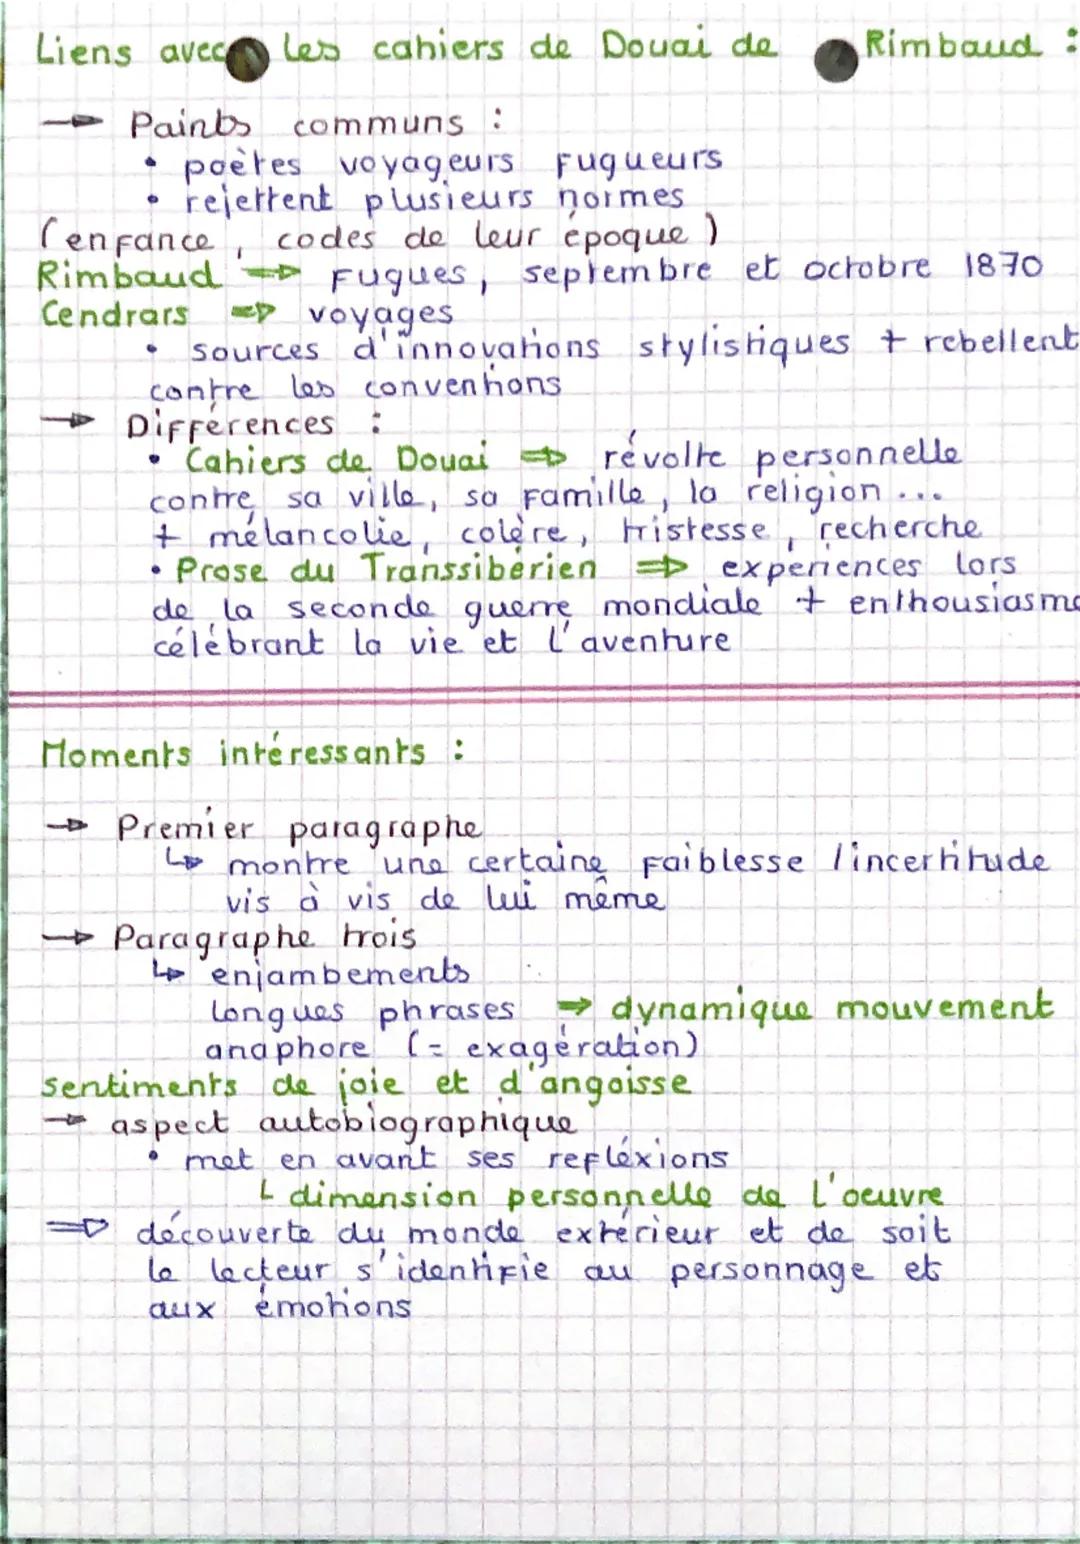 Liens avec les cahiers de Douai de Rimbaud :
→ Points communs :
• poètes voyageurs fugueurs
• rejettent plusieurs normes
(enfance, codes de leur époque)
Rimbaud ⇒ Fugues, septembre et octobre 1870
Cendrars ⇒ voyages
• sources d'innovations stylistiques + rebellent
contre les conventions
→ Différences :
• Cahiers de Douai ⇒ révolte personnelle
contre sa ville, sa famille, la religion ...
+ mélancolie, colère, tristesse, recherche
• Prose du Transsibérien ⇒ expériences lors
de la seconde guerre mondiale + enthousiasme
célébrant la vie et l'aventure
Moments intéressants :
→ Premier paragraphe
↳ montre une certaine faiblesse / incertitude
vis à vis de lui même
→ Paragraphe trois
↳ enjambements
longues phrases ⇒ dynamique mouvement
anaphore (= exagération)
sentiments de joie et d'angoisse
→ aspect autobiographique
• met en avant ses refléxions
↳ dimension personnelle de l'oeuvre
⇒ découverte du monde extérieur et de soit
le lecteur s'identifie au personnage et
aux émotions